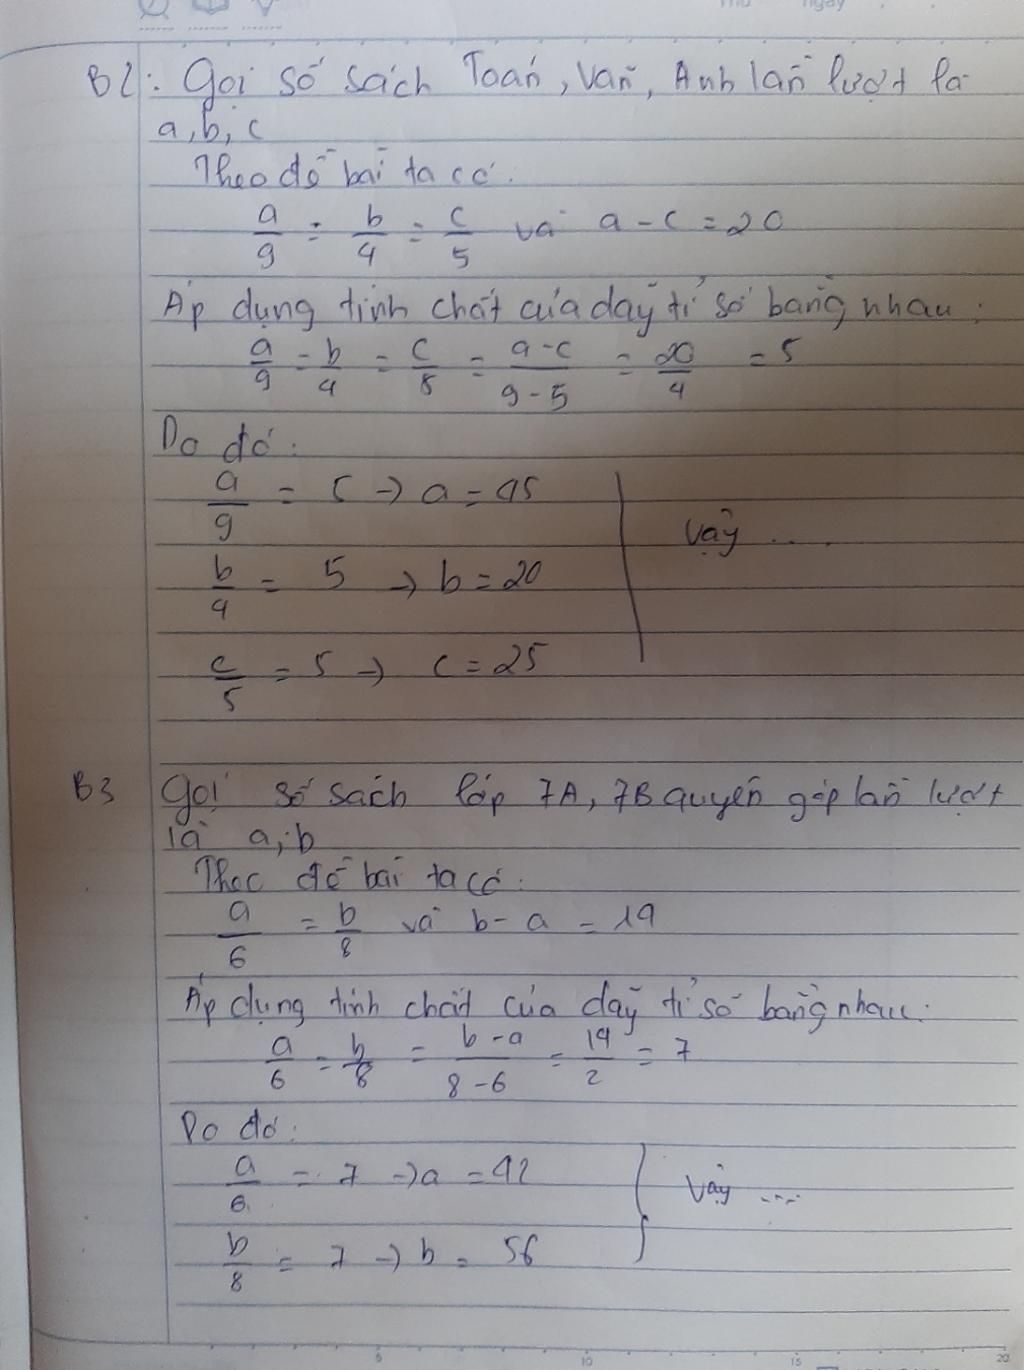 Thứ ngày
B2: Gọi số sách Toán, Văn, Anh lần lượt là
a, b, c
Theo đề bài ta có:
a/9 = b/4 = c/5 và a - c = 20
Áp dụng tính chất của dãy tỉ số bằng nhau:
a/9 = b/4 = c/5 = a-c/9-5 = 20/4 = 5
Do đó:
a/9 = 5 → a = 45
Vậy ....
b/4 = 5 → b = 20
c/5 = 5 → c = 25
B3 Gọi số sách lớp 7A, 7B quyên góp lần lượt
là a, b
Theo đề bài ta có:
a/6 = b/8 và b - a = 14
Áp dụng tính chất của dãy tỉ số bằng nhau:
a/6 = b/8 = b-a/8-6 = 14/2 = 7
Do đó:
a/6 = 7 → a = 42
Vậy ....
b/8 = 7 → b = 56
5 10 15 20